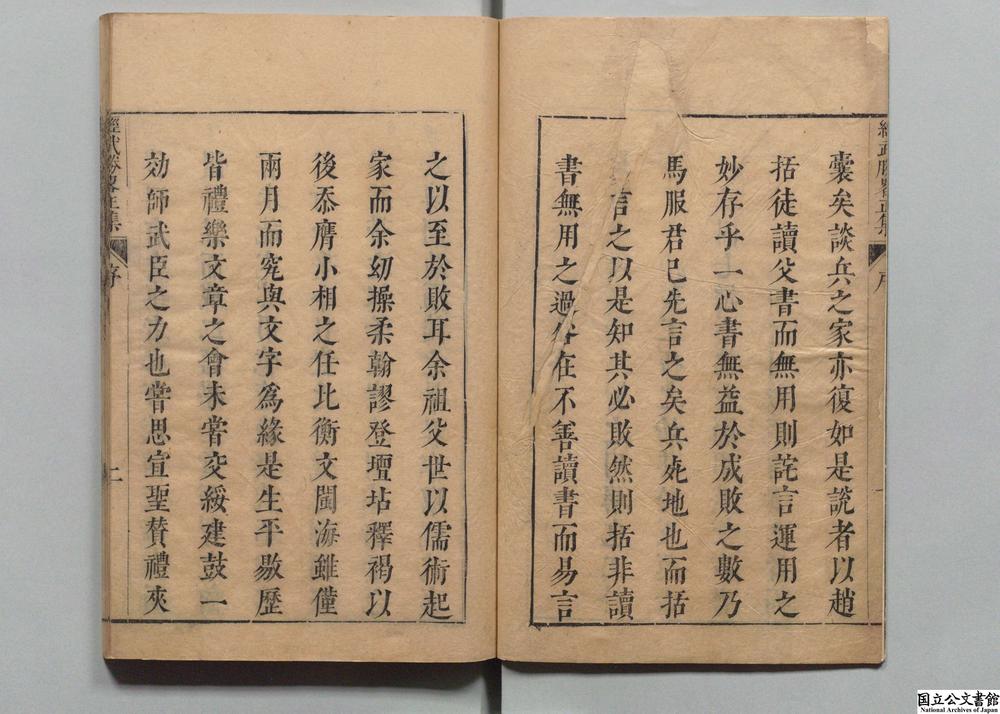 囊矣談兵之家亦復如是説者以趙
括徒讀父書而無用則詫言運用之
妙存乎一心書無益於成敗之數乃
馬服君已先言之矣兵死地也而括
易言之以是知其必敗然則括非讀
書無用之過咎在不善讀書而易言
之以至於敗耳余祖父世以儒術起
家而余幼操柔翰謬登壇坫釋褐以
後忝膺小相之任比衡文閩海雖僅
兩月而究與文字爲緣是生平敭歷
皆禮樂文章之會未嘗交綏建鼓一
効師武臣之力也嘗思宣聖贊禮夾
經武勝畧正集
序
國立公文書館
National Archives of Japan